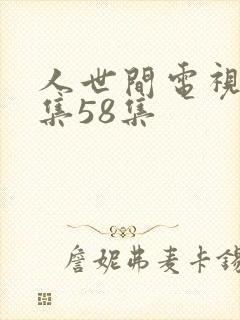 人世間電視
集58集
詹妮弗麦卡錫